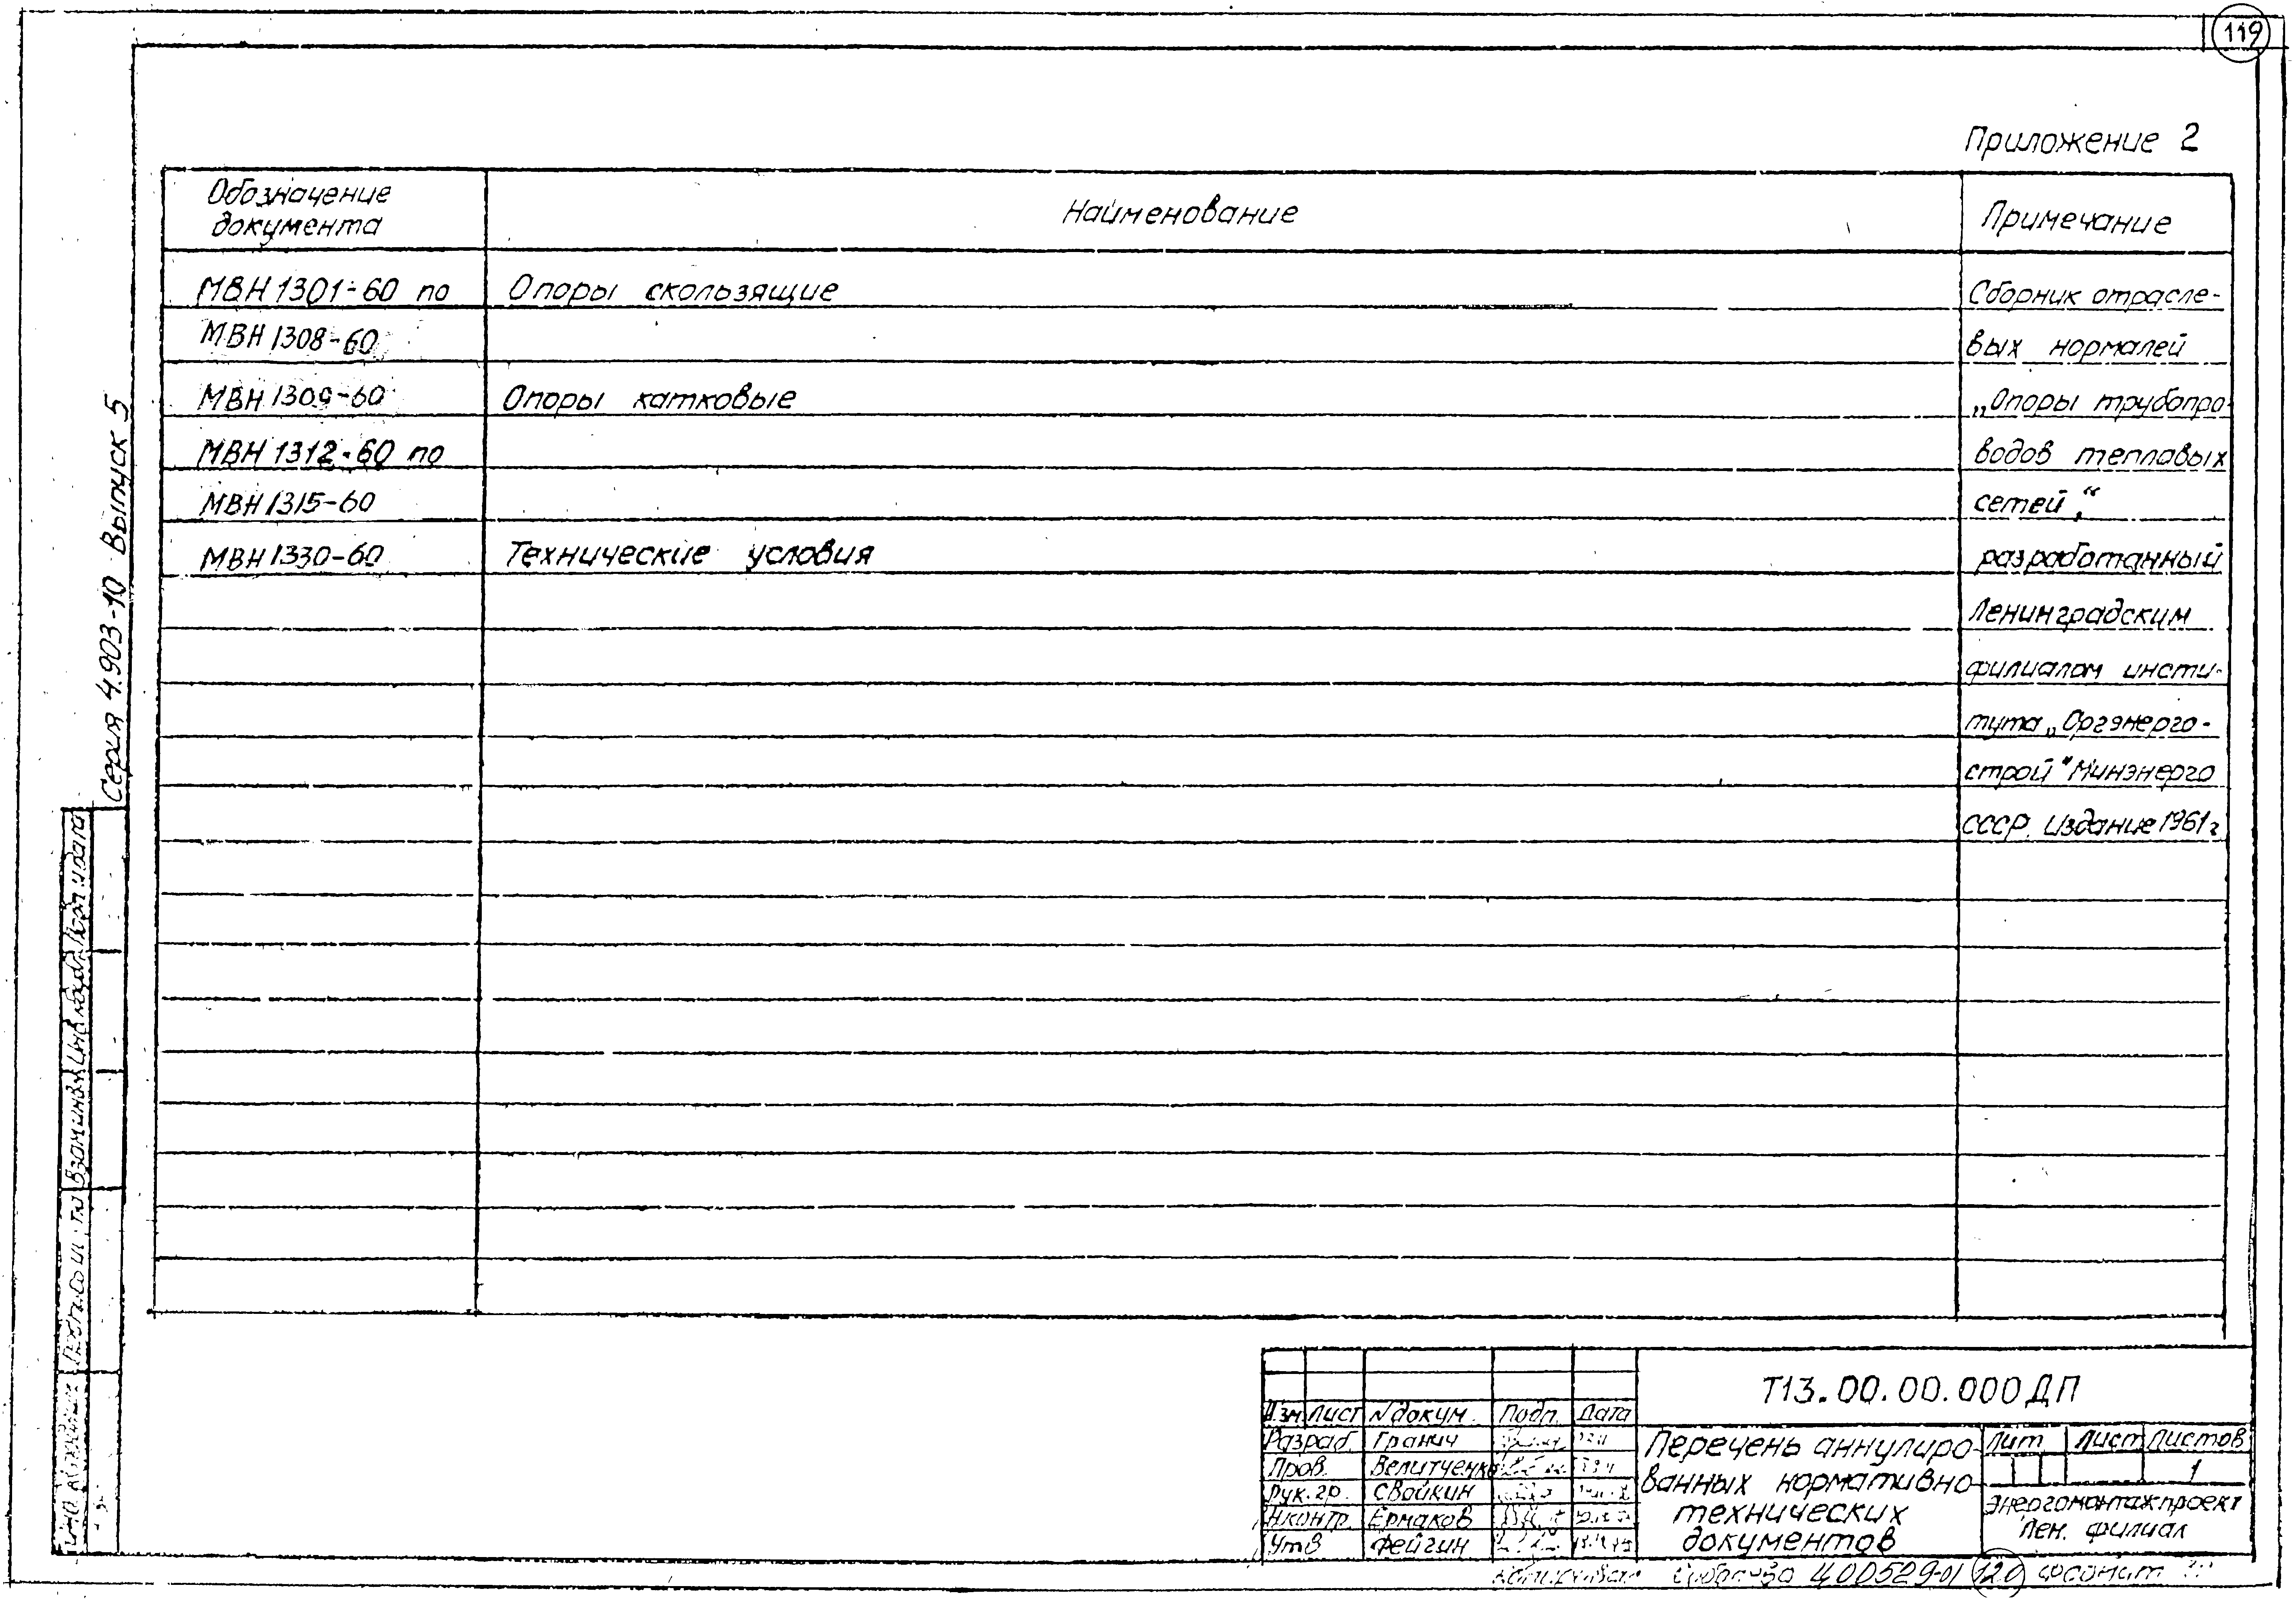 119
Приложение 2
Обозначение документа
Наименование
Примечание
МВН 1301-60 по
Опоры скользящие
Сборник отрасле-
МВН 1308-60
вых нормалей
МВН 1309-60
Опоры катковые
„Опоры трубопро-
МВН 1312-60 по
водов тепловых
МВН 1315-60
сетей“,
МВН 1330-60
Технические условия
разработанный
Ленинградским
филиалом инсти-
тута „Оргэнерго-
строй“ Минэнерго
СССР. Издание 1961г
Серия 4.903-10 Выпуск 5
Т13.00.00.000 ДП
Изм. Лист № докум. Подп. Дата
Разраб. Гранич
Пров. Велитченко
Рук. гр. Свойкин
Н.контр. Ермаков
Утв Фейгин
Перечень аннулиро-
ванных нормативно
технических
документов
Лит Лист Листов
1
Энергомонтажпроект
Лен. филиал
Копировал Ц00529-01 120 Формат